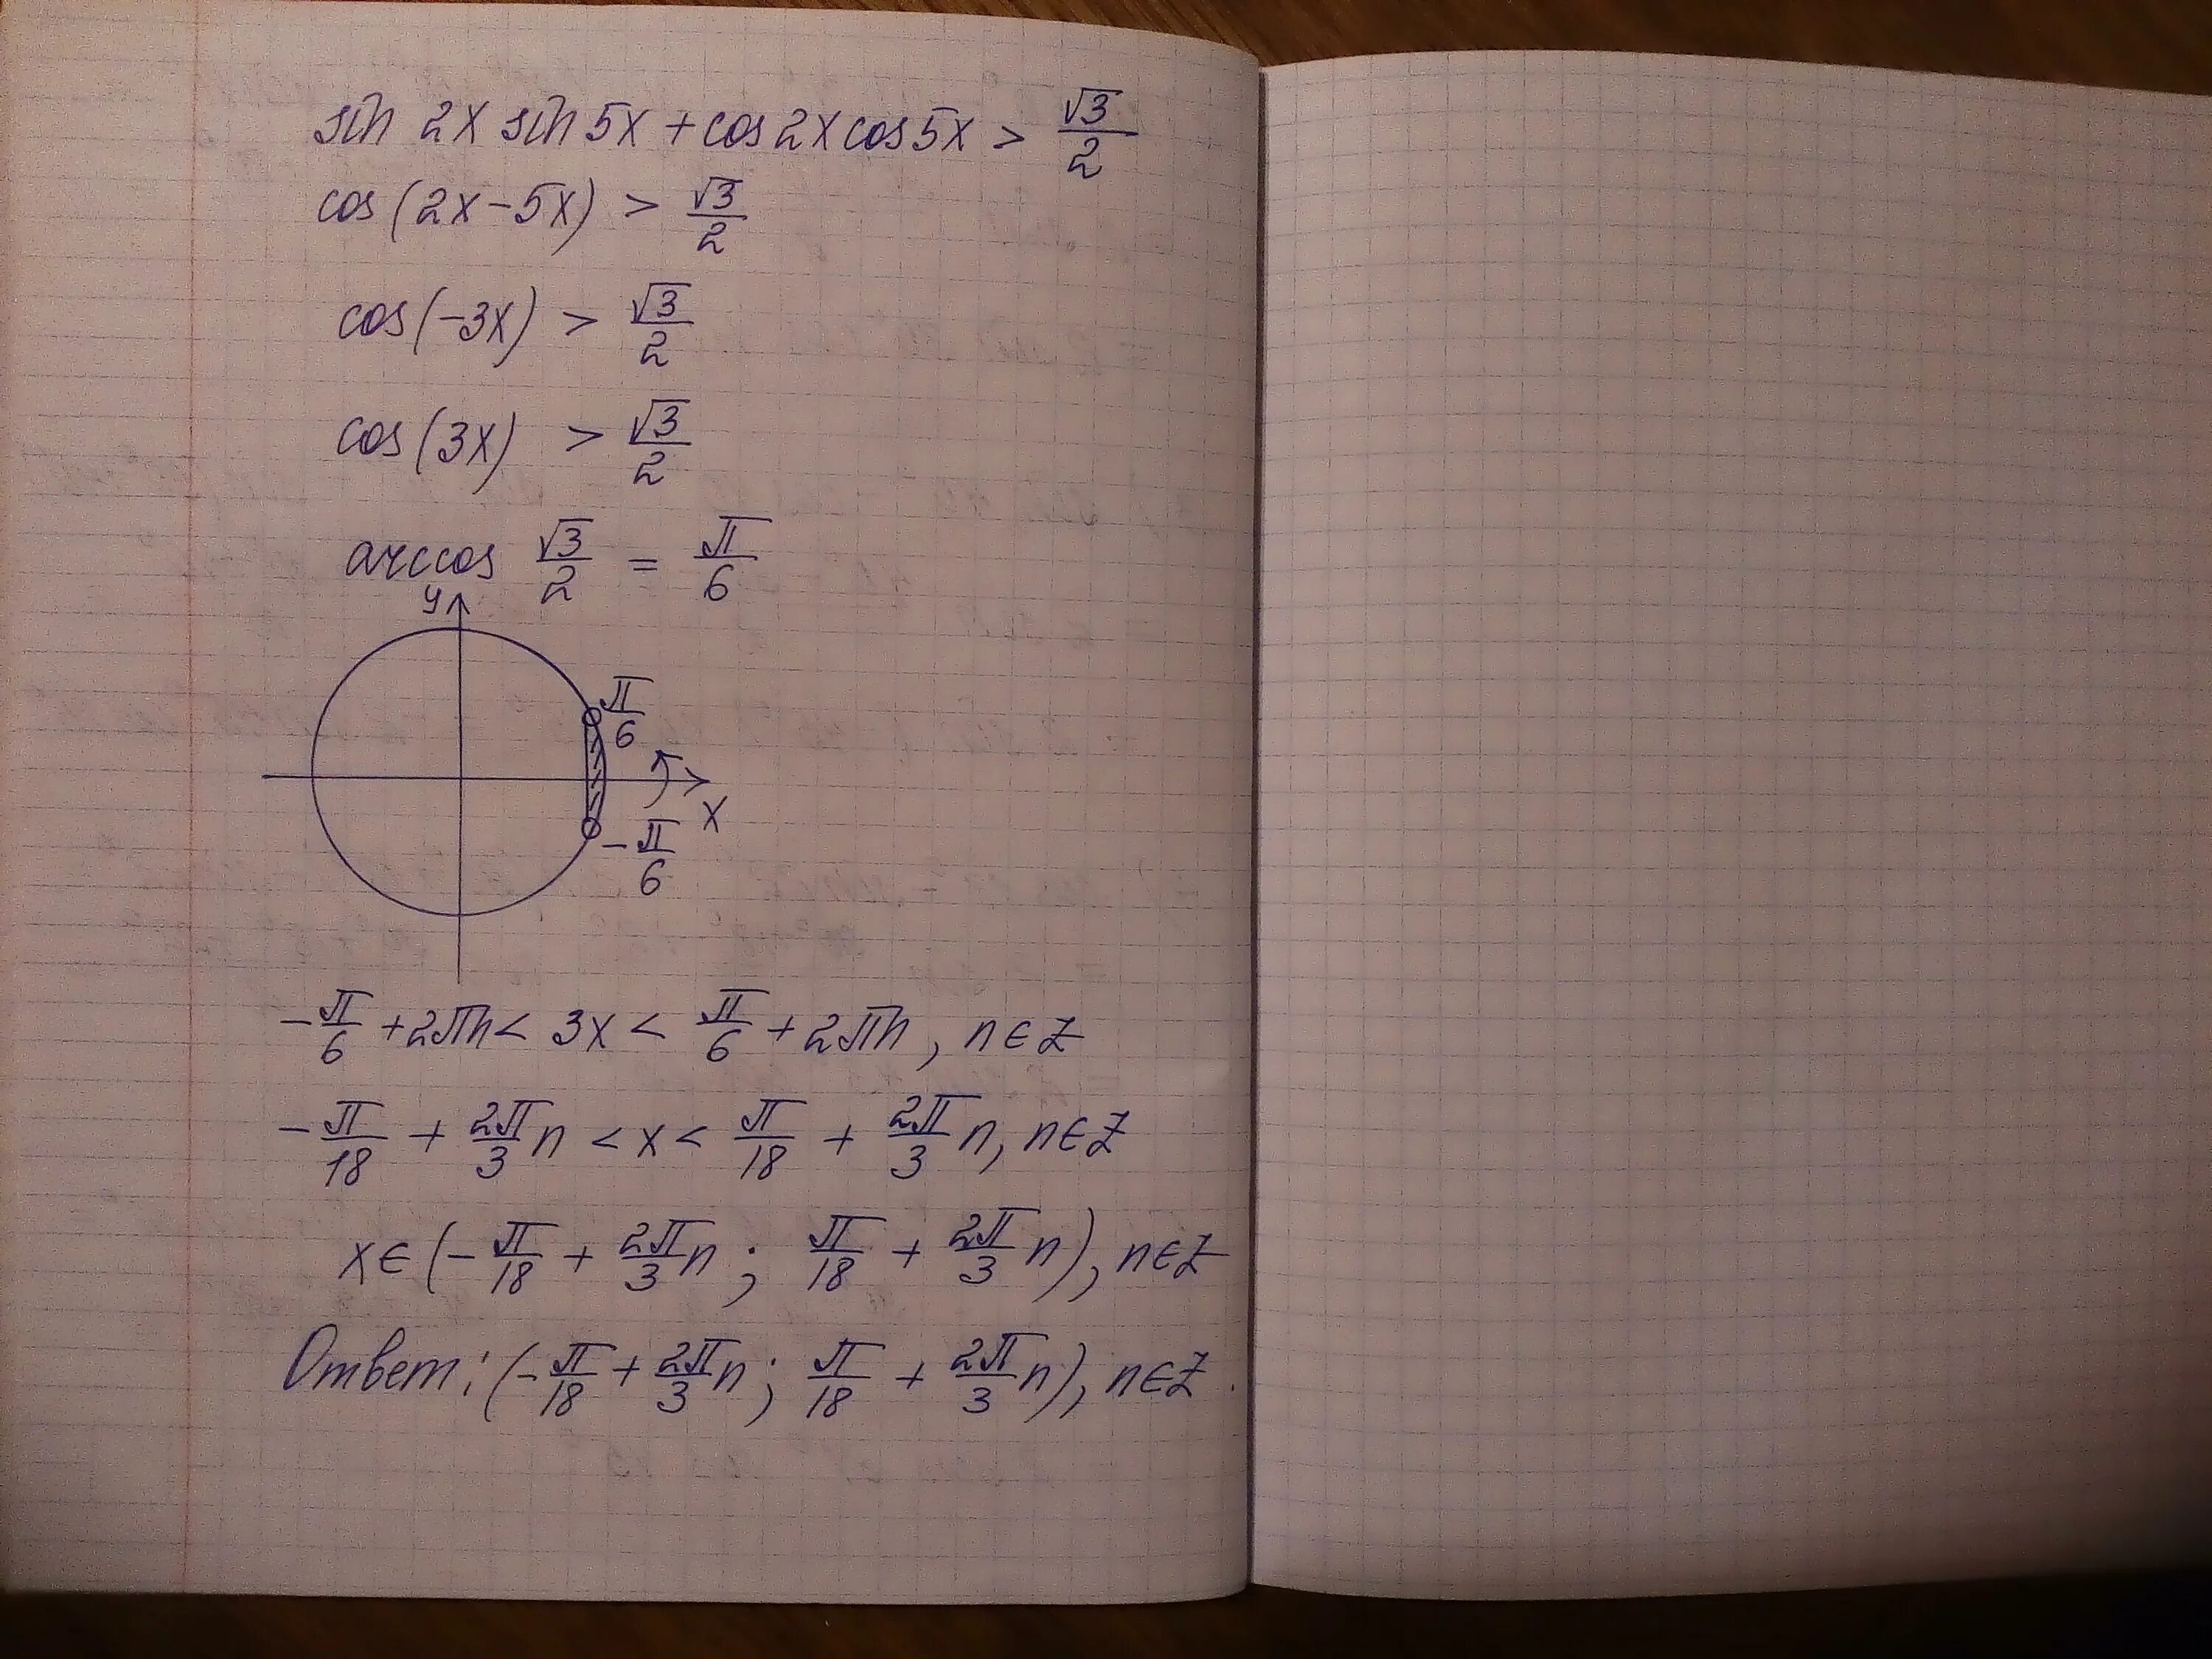 sin 2x sin 5x + cos 2x cos 5x > √3/2
cos(2x - 5x) > √3/2
cos(-3x) > √3/2
cos(3x) > √3/2
arccos √3/2 = π/6
y
π/6
x
-π/6
-π/6 + 2πn < 3x < π/6 + 2πn, n∈Z
-π/18 + 2π/3 n < x < π/18 + 2π/3 n, n∈Z
x∈(-π/18 + 2π/3 n; π/18 + 2π/3 n), n∈Z
Ответ: (-π/18 + 2π/3 n; π/18 + 2π/3 n), n∈Z.